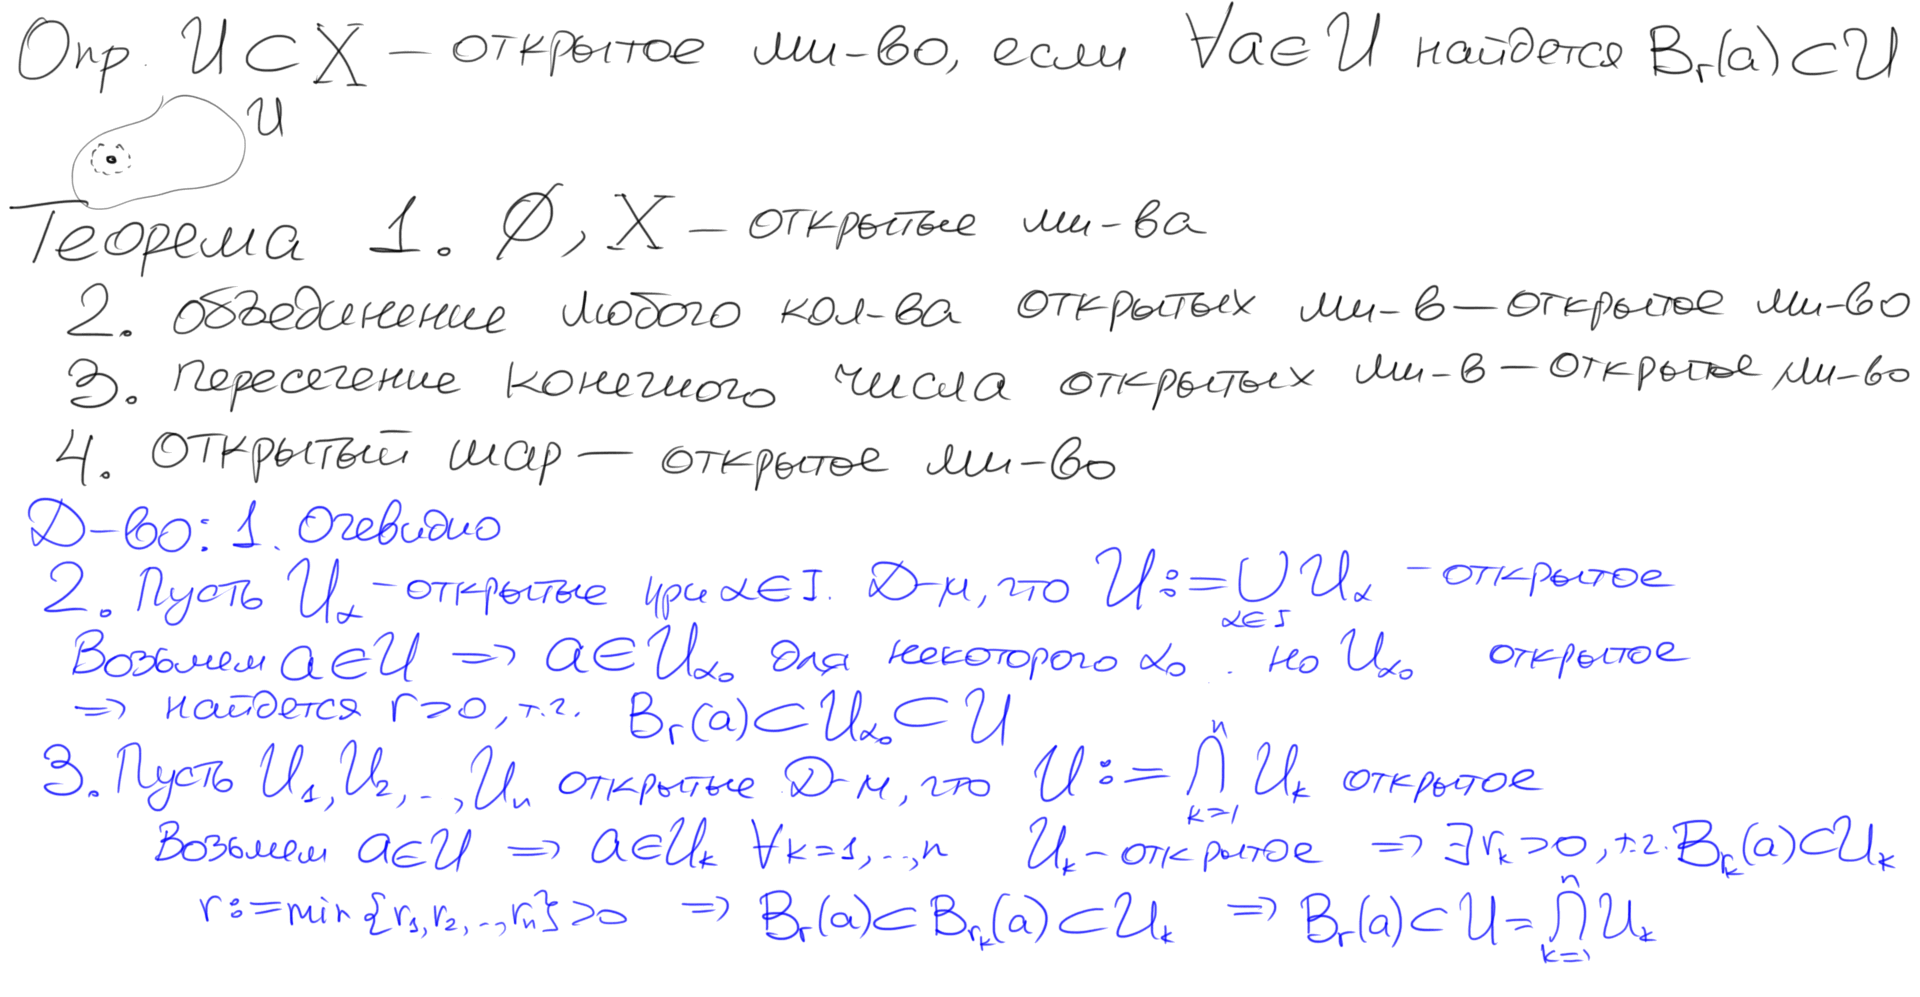 Опр. U ⊂ X – открытое мн-во, если ∀a∈U найдется Bᵣ(a)⊂U
U
Теорема 1. ∅, X – открытые мн-ва
2. объединение любого кол-ва открытых мн-в – открытое мн-во
3. пересечение конечного числа открытых мн-в – открытое мн-во
4. открытый шар – открытое мн-во
Д-во: 1. Очевидно
2. Пусть U_α – открытые при α∈I. Д-м, что U := ∪_{α∈I} U_α – открытое
Возьмем a∈U ⇒ a∈U_{α₀} для некоторого α₀. но U_{α₀} открытое
⇒ найдется r>0, т.ч. Bᵣ(a)⊂U_{α₀}⊂U
3. Пусть U₁, U₂, .., Uₙ открытые Д-м, что U := ⋂_{k=1}^{n} U_k открытое
Возьмем a∈U ⇒ a∈U_k ∀k=1,..,n U_k – открытое ⇒ ∃r_k>0, т.ч. B_{r_k}(a)⊂U_k
r := min{r₁, r₂, .., rₙ}>0 ⇒ Bᵣ(a)⊂B_{r_k}(a)⊂U_k ⇒ Bᵣ(a)⊂U = ⋂_{k=1}^{n} U_k